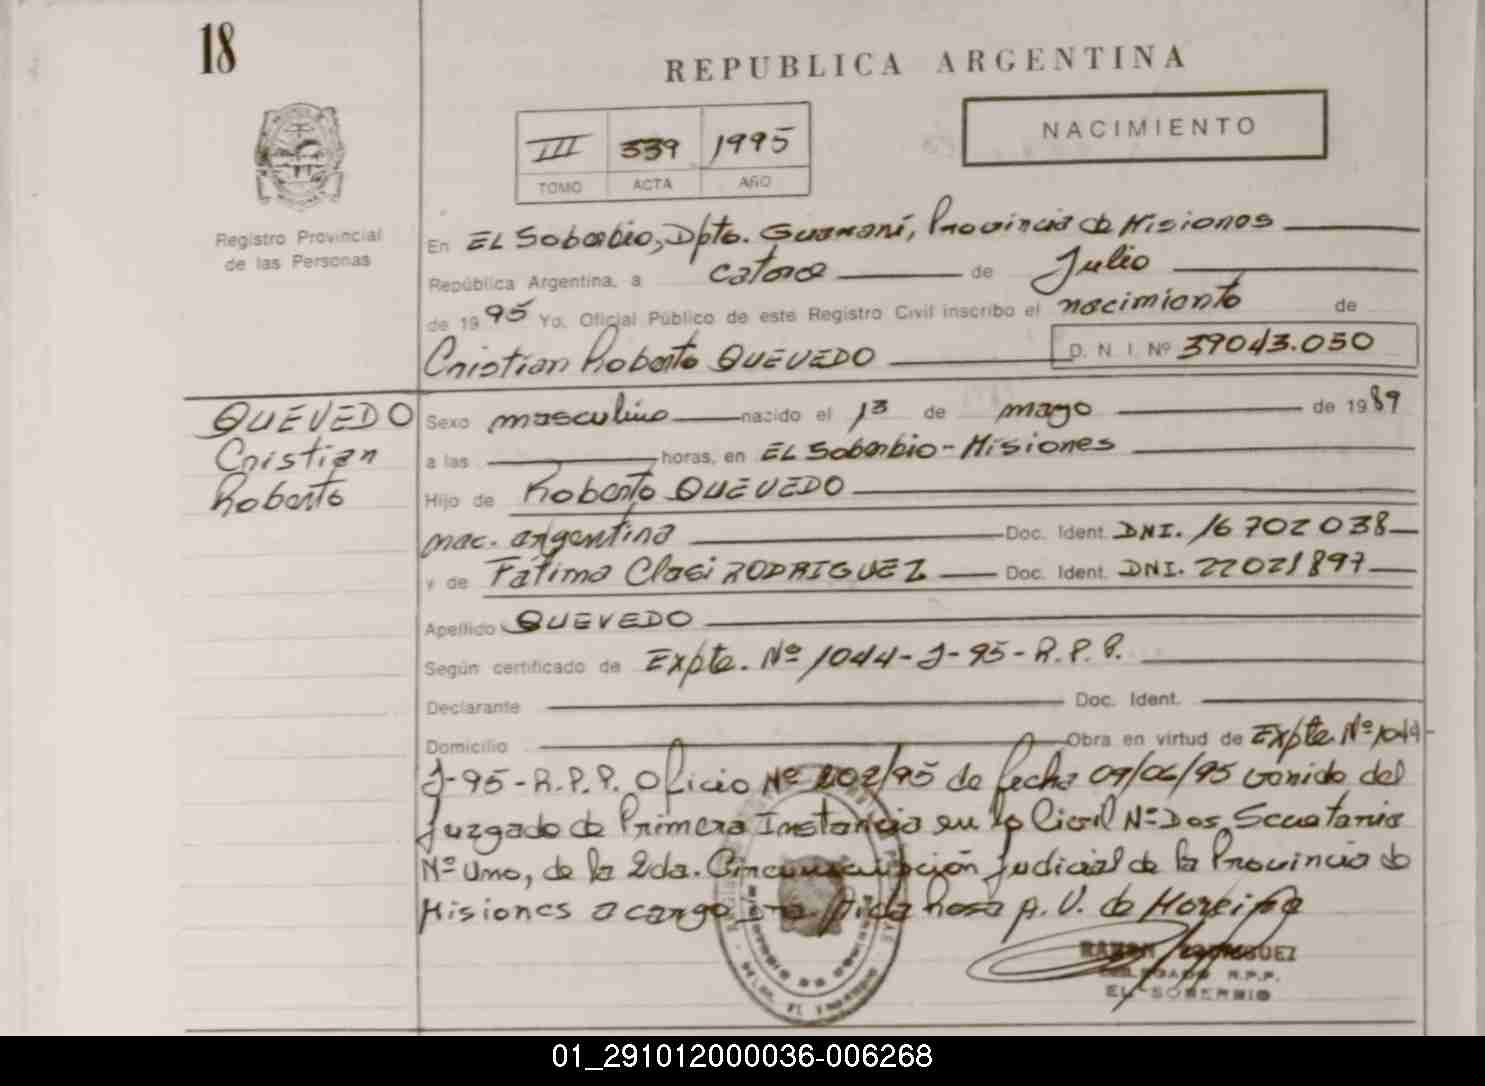 18
REPUBLICA ARGENTINA
NACIMIENTO
III 339 1995
TOMO ACTA AÑO
Registro Provincial
de las Personas
En EL Soberbio, Dpto. Guaraní, Provincia de Misiones
República Argentina, a catorce de Julio
de 1995 Yo, Oficial Público de este Registro Civil inscribo el nacimiento de
Cristian Roberto QUEVEDO D. N. I. Nº 39043.050
QUEVEDO
Cristian
Roberto
Sexo masculino nacido el 13 de mayo de 1989
a las horas, en EL Soberbio - Misiones
Hijo de Roberto QUEVEDO
nac. argentina Doc. Ident. DNI. 16 702 038
y de Fátima Clasi RODRIGUEZ Doc. Ident. DNI. 22021897
Apellido QUEVEDO
Según certificado de Expte. Nº 1044-J-95-R.P.P.
Declarante Doc. Ident.
Domicilio Obra en virtud de Expte Nº 1044-
J-95-R.P.P. Oficio Nº 202/95 de fecha 09/06/95 venido del
Juzgado de Primera Instancia en lo Civil Nº Dos, Secretaria
Nº Uno, de la 2da. Circunscripción judicial de la Provincia de
Misiones a cargo Dra. Rosa A. V. de Moreira
RAMON RODRIGUEZ
DELEGADO R.P.P.
EL SOBERBIO
01_291012000036-006268